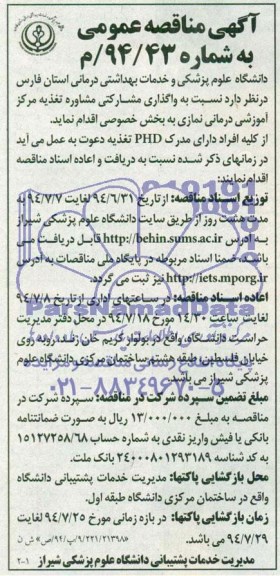 آگهی مناقصه عمومی
به شماره ۹۴/۴۳/م
دانشگاه علوم پزشکی و خدمات بهداشتی درمانی استان فارس
درنظر دارد نسبت به واگذاری مشارکتی مشاوره تغذیه مرکز
آموزشی درمانی نمازی به بخش خصوصی اقدام نماید.
از کلیه افراد دارای مدرک PHD تغذیه دعوت به عمل می آید
در زمانهای ذکر شده نسبت به دریافت و اعاده اسناد مناقصه
اقدام نمایند:
توزیع اسناد مناقصه: از تاریخ ۹۴/۶/۳۱ لغایت ۹۴/۷/۷ به
مدت هشت روز از طریق سایت دانشگاه علوم پزشکی شیراز
به آدرس http://behin.sums.ac.ir قابل دریافت می
باشد، ضمنا اسناد مربوطه در پایگاه ملی مناقصات به آدرس
http://iets.mporg.ir نیز ثبت می گردد.
اعاده اسناد مناقصه: در ساعتهای اداری از تاریخ ۹۴/۷/۸
لغایت ساعت ۱۴/۳۰ مورخ ۹۴/۷/۱۸ در محل دفتر مدیریت
حراست دانشگاه واقع در بولوار کریم خان زند، روبه روی
خیابان فلسطین طبقه هشتم ساختمان مرکزی دانشگاه علوم
پزشکی شیراز می باشد.
مبلغ تضمین سپرده شرکت در مناقصه: سپرده شرکت در
مناقصه به مبلغ ۱۳/۰۰۰/۰۰۰ ریال به صورت ضمانتنامه
بانکی یا فیش واریز نقدی به شماره حساب ۱۵۱۲۷۲۵۸/۶۸
به کد شناسه ۲۴۰۰۰۸۰۱۲۹۳۱۸۹ بانک ملت.
محل بازگشایی پاکتها: مدیریت خدمات پشتیبانی دانشگاه
واقع در ساختمان مرکزی دانشگاه طبقه اول.
زمان بازگشایی پاکتها: در بازه زمانی مورخ ۹۴/۷/۲۵ لغایت
۹۴/۷/۲۹ می باشد.
مدیریت خدمات پشتیبانی دانشگاه علوم پزشکی شیراز ۱-۲
ParsNamadData
۰۲۱-۸۸۳۴۹۶۷۰-۵